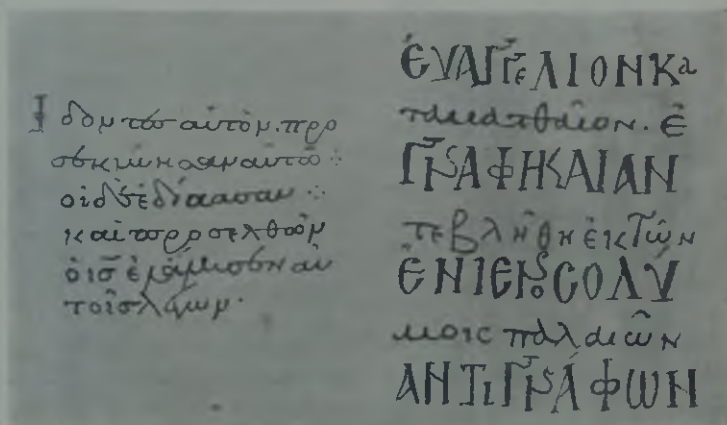 Ἰδόντες αὐτὸν. προ
σεκύνησαν αὐτῶ ⁘
οἱ δὲ ἐδίστασαν ⁘
καὶ προσελθὼν
ὁ ι̅ς̅ ἐλάλησεν αὐ
τοῖς λέγων.
ἘΥΑΓΓΕΛΙΟΝ ΚΑ
τα ματθαῖον. ἐ
ΓΡΑΦΗ ΚΑΙ ΑΝ
τεβλήθη ἐκ τῶν
ἘΝ ΙΕΡΟΣΟΛΎ
μοις παλαιῶν
ΑΝΤΙΓΡΆΦΩΝ